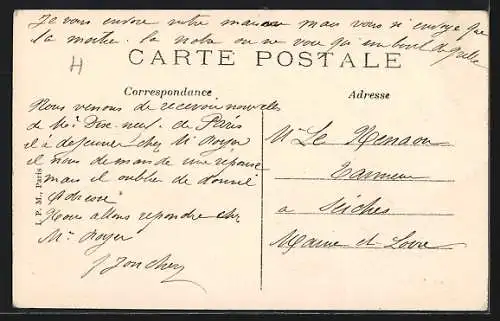 Je vous envoie votre maison mais vous n'envoye que
la moitie. la notre on ne voie qu'un bout de
CARTE POSTALE
H
Correspondance
Nous venons de recevoir nouvelles
de Mr Dix-neuf. de Paris
il a dejeuner chez Mr Royer
il nous demande une reponse
mais il oublier de donné
adresse
Nous allons repondre chez
Mr Royer
J Jouchez
I. P. M., Paris
Adresse
Mr Le
a
Maine et Loire